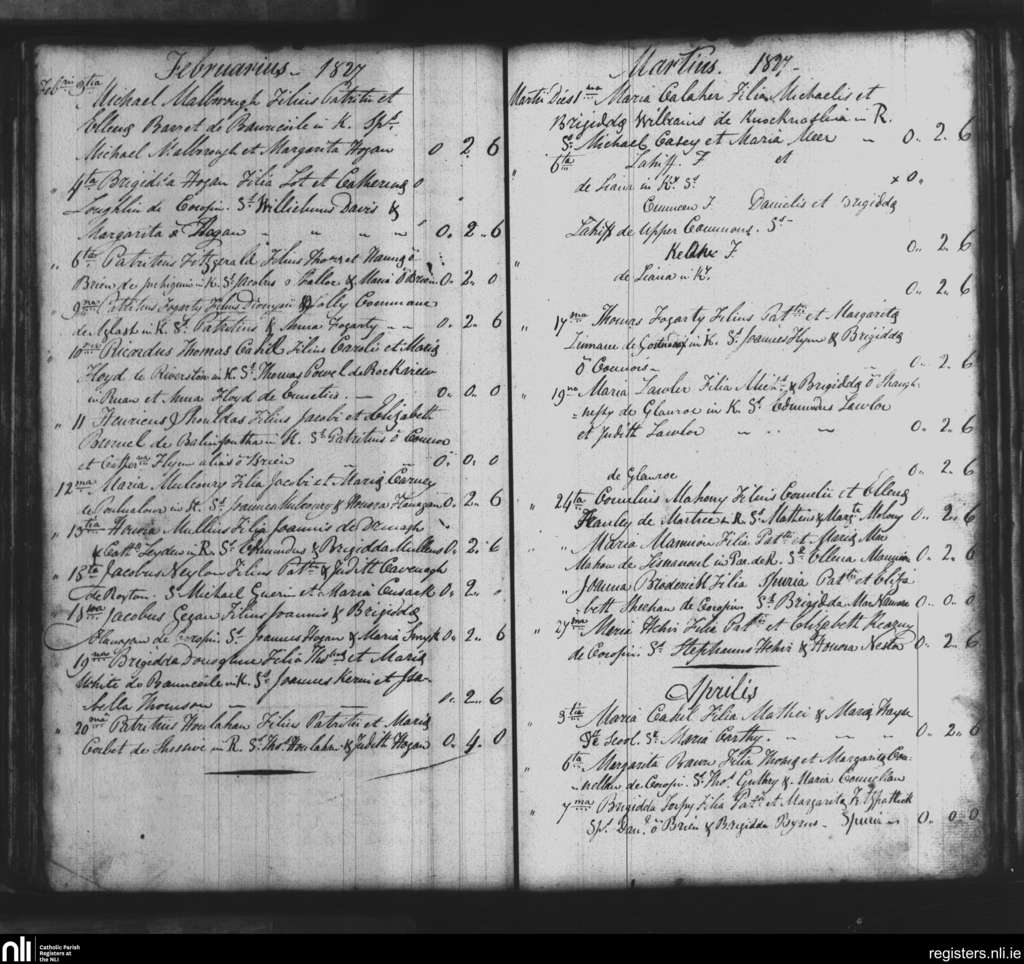 Februarius - 1827
Feb.rii 3tia
Michael Malbrough Filius Patritii et
Ellena Barret de in K. Sp.t
Michael Malbrough et Margarita Hogan 0 2 6
4ta Brigidda Hogan Filia Lot et Catherina 0
Loughlin de Corofin. S.t Willielmus Davis &
Margarita Hogan 0 .. 2 .. 6
6ta Patritius Fitzgerald Filius Thomæ et
Brien de in K. S.t & Maria O Brien 0 .. 2 .. 0
9na Patritius Fogarty Filius Dionysii & Sally Commane
de in K. S.t Patritius & Anna Fogarty - - 0 .. 2 .. 6
10 Ricardus Thomas Cahil Filius Caroli et Maria
Floyd de Riverston in K. S.t Thomas Powel de Rockview
in Ruan et Anna Floyd de - 0 .. 0 .. 0
11 Henricus Filius Jacobi et Elizabeth
de in K. S.t Patritius ö Connor
et Cather Flynn alias ö Brien 0 .. 0 .. 0
12ma Maria Mulconry Filia Jacobi et Maria Carney
de in K. S.t Joannes Mulconry & Honora Flanagan 0 .. 2 .. 6
13tia Honora Mullins Filia Joannis de
& Cath.a in R. S.t Edmundus & Brigidda Mullins 0 .. 2 .. 6
15ta Jacobus Neylon Filius Pat.tii & Judith Cavenagh
de Roxton. S.t Michael Guerin et Maria Cusack 0 .. 2 .. 0
18va Jacobus Gegan Filius Joannis & Brigidda
Flanagan de Corofin S.t Joannes Hogan & Maria Smyth 0 .. 2 .. 6
19na Brigidda Donoghue Filia Tho et Maria
White de in K. S.t Joannes Kerin et Isa-
bella Thomson - 0 .. 2 .. 6
20ma Patritius Houlahan Filius Patritii et Maria
Corbet de in R. S.t Tho.s Houlahan & Judith Hogan 0 .. 4 .. 0
Martius. 1827 -
Martii Dies 1ma Maria Calaher Filia Michaelis et
Brigidda Williams de in R.
S.t Michael Casey et Maria Meer - 0 .. 2 .. 6
6ta Lahiff. F et
de Liana in K. S.t × 0 ..
F Danielis et Brigidda
Lahiff de Upper Commons. S.t - 0 .. 2 .. 6
F
de Liana in K. 0 .. 2 .. 6
17ma Thomas Fogarty Filius Pat.tii et Margarita
de in K. S.t Joannes Flynn & Brigidda
ö Connors - 0 .. 2 .. 6
19na Maria Lawler Filia Mich & Brigidda ö Shaugh-
=nessy de Glanroe in K. S.t Edmundus Lawlor
et Judith Lawlor 0 .. 2 .. 6
de Glanroe 0 .. 2 .. 6
24ta Cornelius Mahony Filius Cornelii et Ellena
de Martree in R. S.t Matheus & Marg.ta Molony 0 .. 2 .. 6
Maria Mannion Filia Pat.tii et Maria Mac
Mahon de in Par. de R. S.t Ellena Mannion 0 .. 2 .. 6
Joanna Broderick Filia Spuria Pat.tii et Eliza
beth Sheehan de Corofin. S.t Brigidda MacNamara 0 .. 0 .. 0
27ma Maria Hehir Filia Pat.tii et Elizabeth Hearny
de Corofin. S.t Stephanus Hehir & Honora Neston 0 .. 2 .. 6
Aprilis
3tia Maria Cahil Filia Mathei & Maria
de Scool. S.t Maria Carthy. - 0 .. 2 .. 6
6ta Margarita Filia Thomæ et Margarita Con-
-nellan de Corofin. S.t Tho.s & Maria
7ma Brigidda Filia Pat.tii et Margarita Fitzpatrick
Sp.t Dan. ö Brien & Brigidda - Spuria 0 .. 0 .. 0
nli
Catholic Parish
Registers at
the NLI
registers.nli.ie